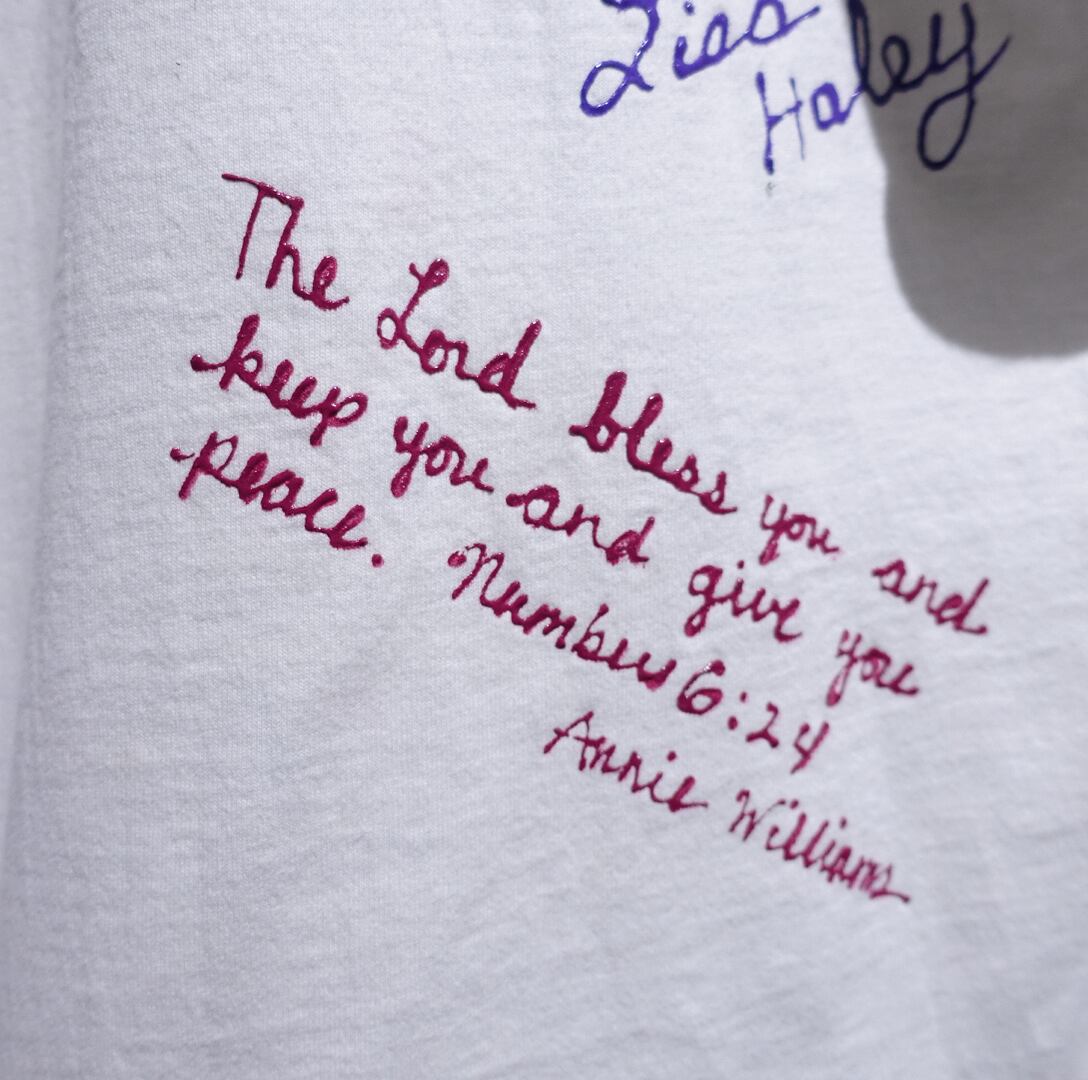 Haley
The Lord bless you and
keep you and give you
peace. Numbers 6:24
Annie Williams